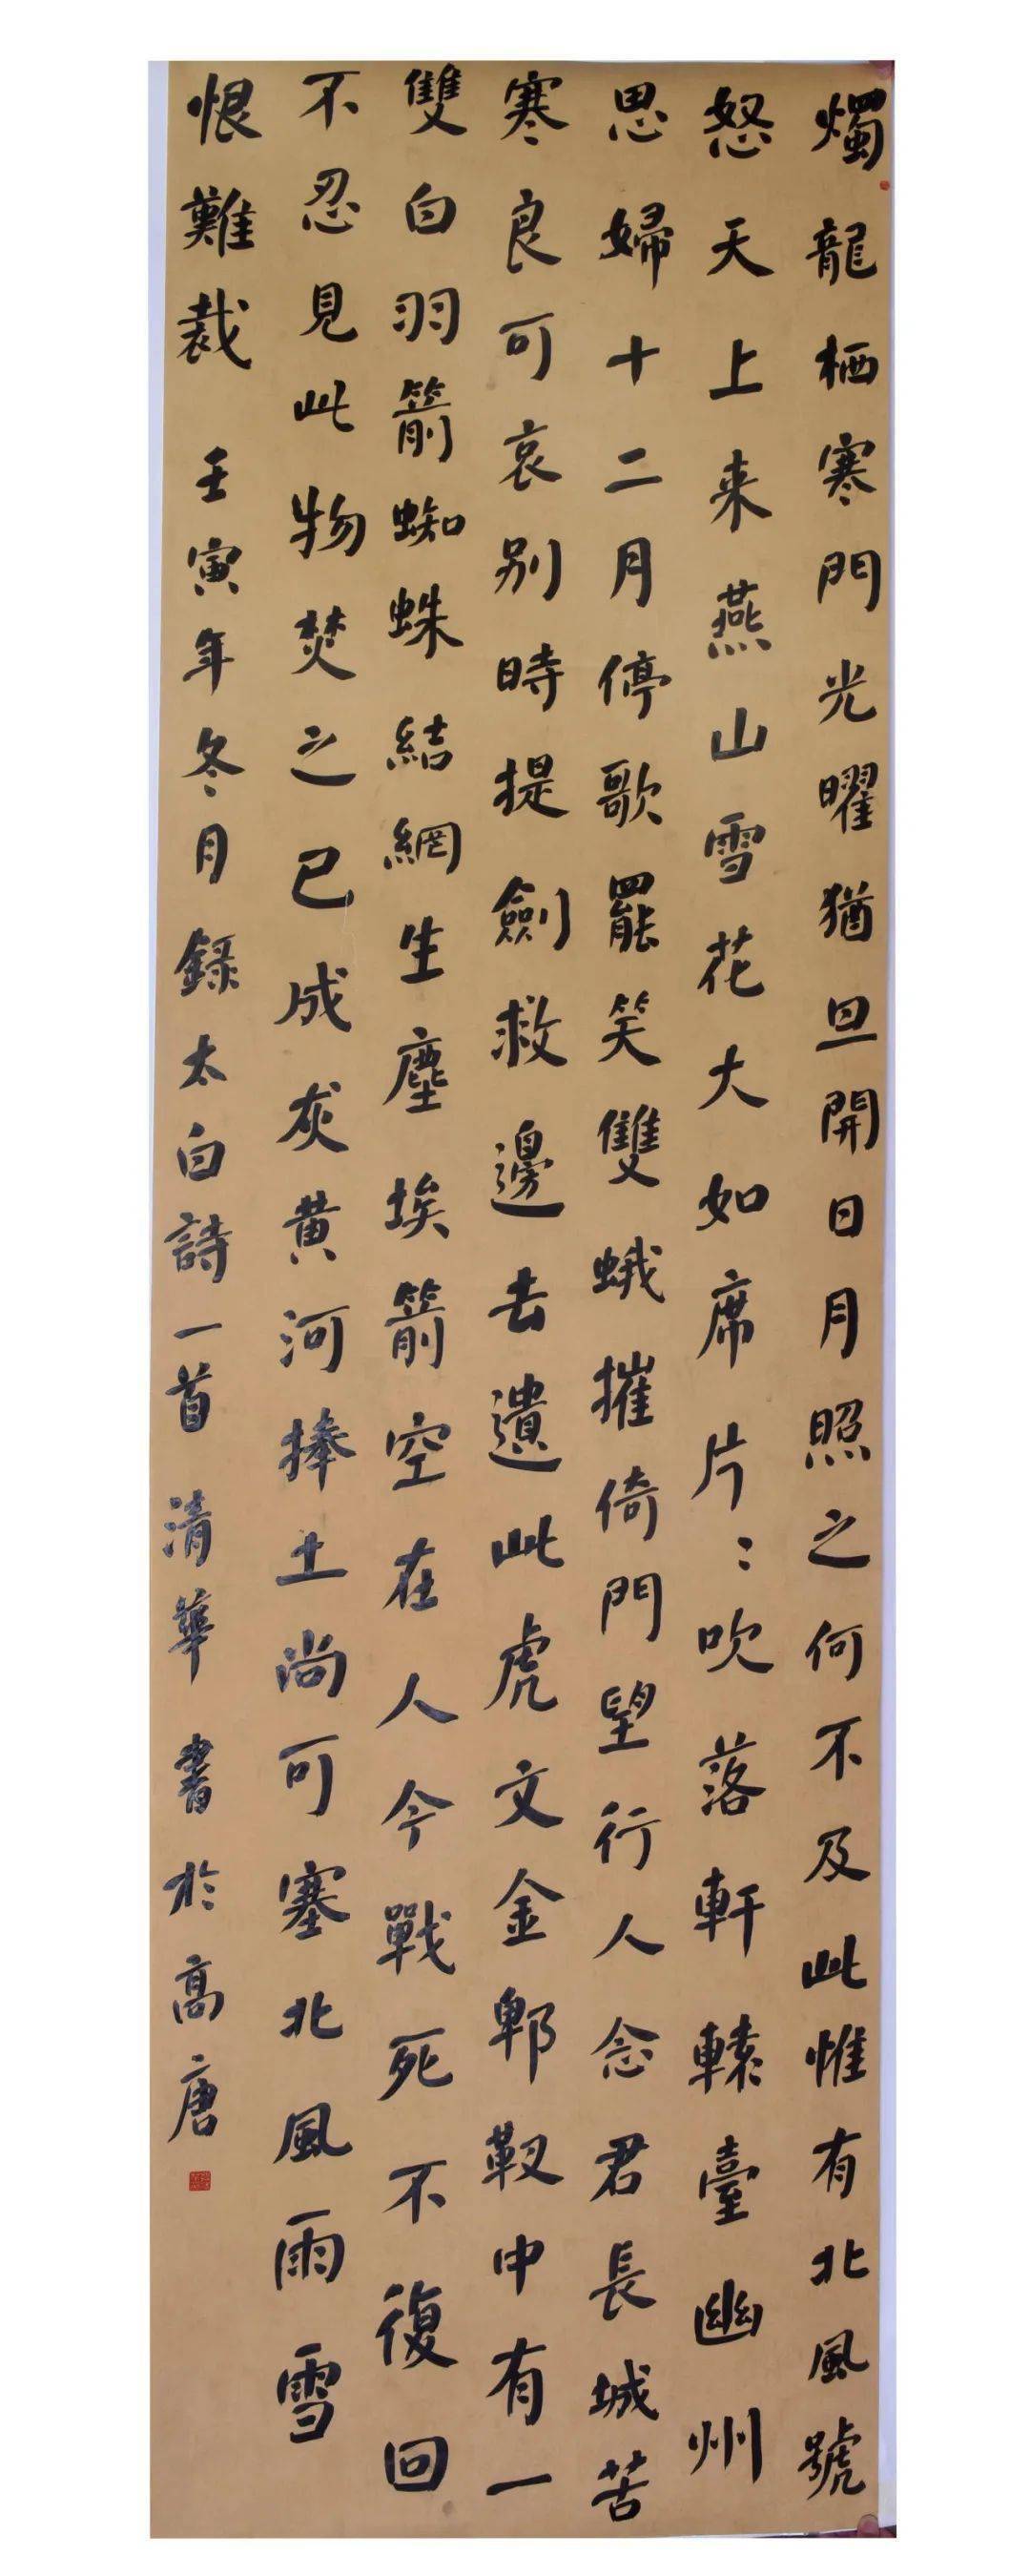 燭龍栖寒門光曜猶旦開日月照之何不及此惟有北風號
怒天上来燕山雪花大如席片〻吹落軒轅臺幽州
思婦十二月停歌罷笑雙蛾摧倚門望行人念君長城苦
寒良可哀别時提劍救邊去遺此虎文金鞞靫中有一
雙白羽箭蜘蛛結網生塵埃箭空在人今戰死不復回
不忍見此物焚之已成灰黄河捧土尚可塞北風雨雪
恨難裁 壬寅年冬月録太白詩一首 清華 書於高唐